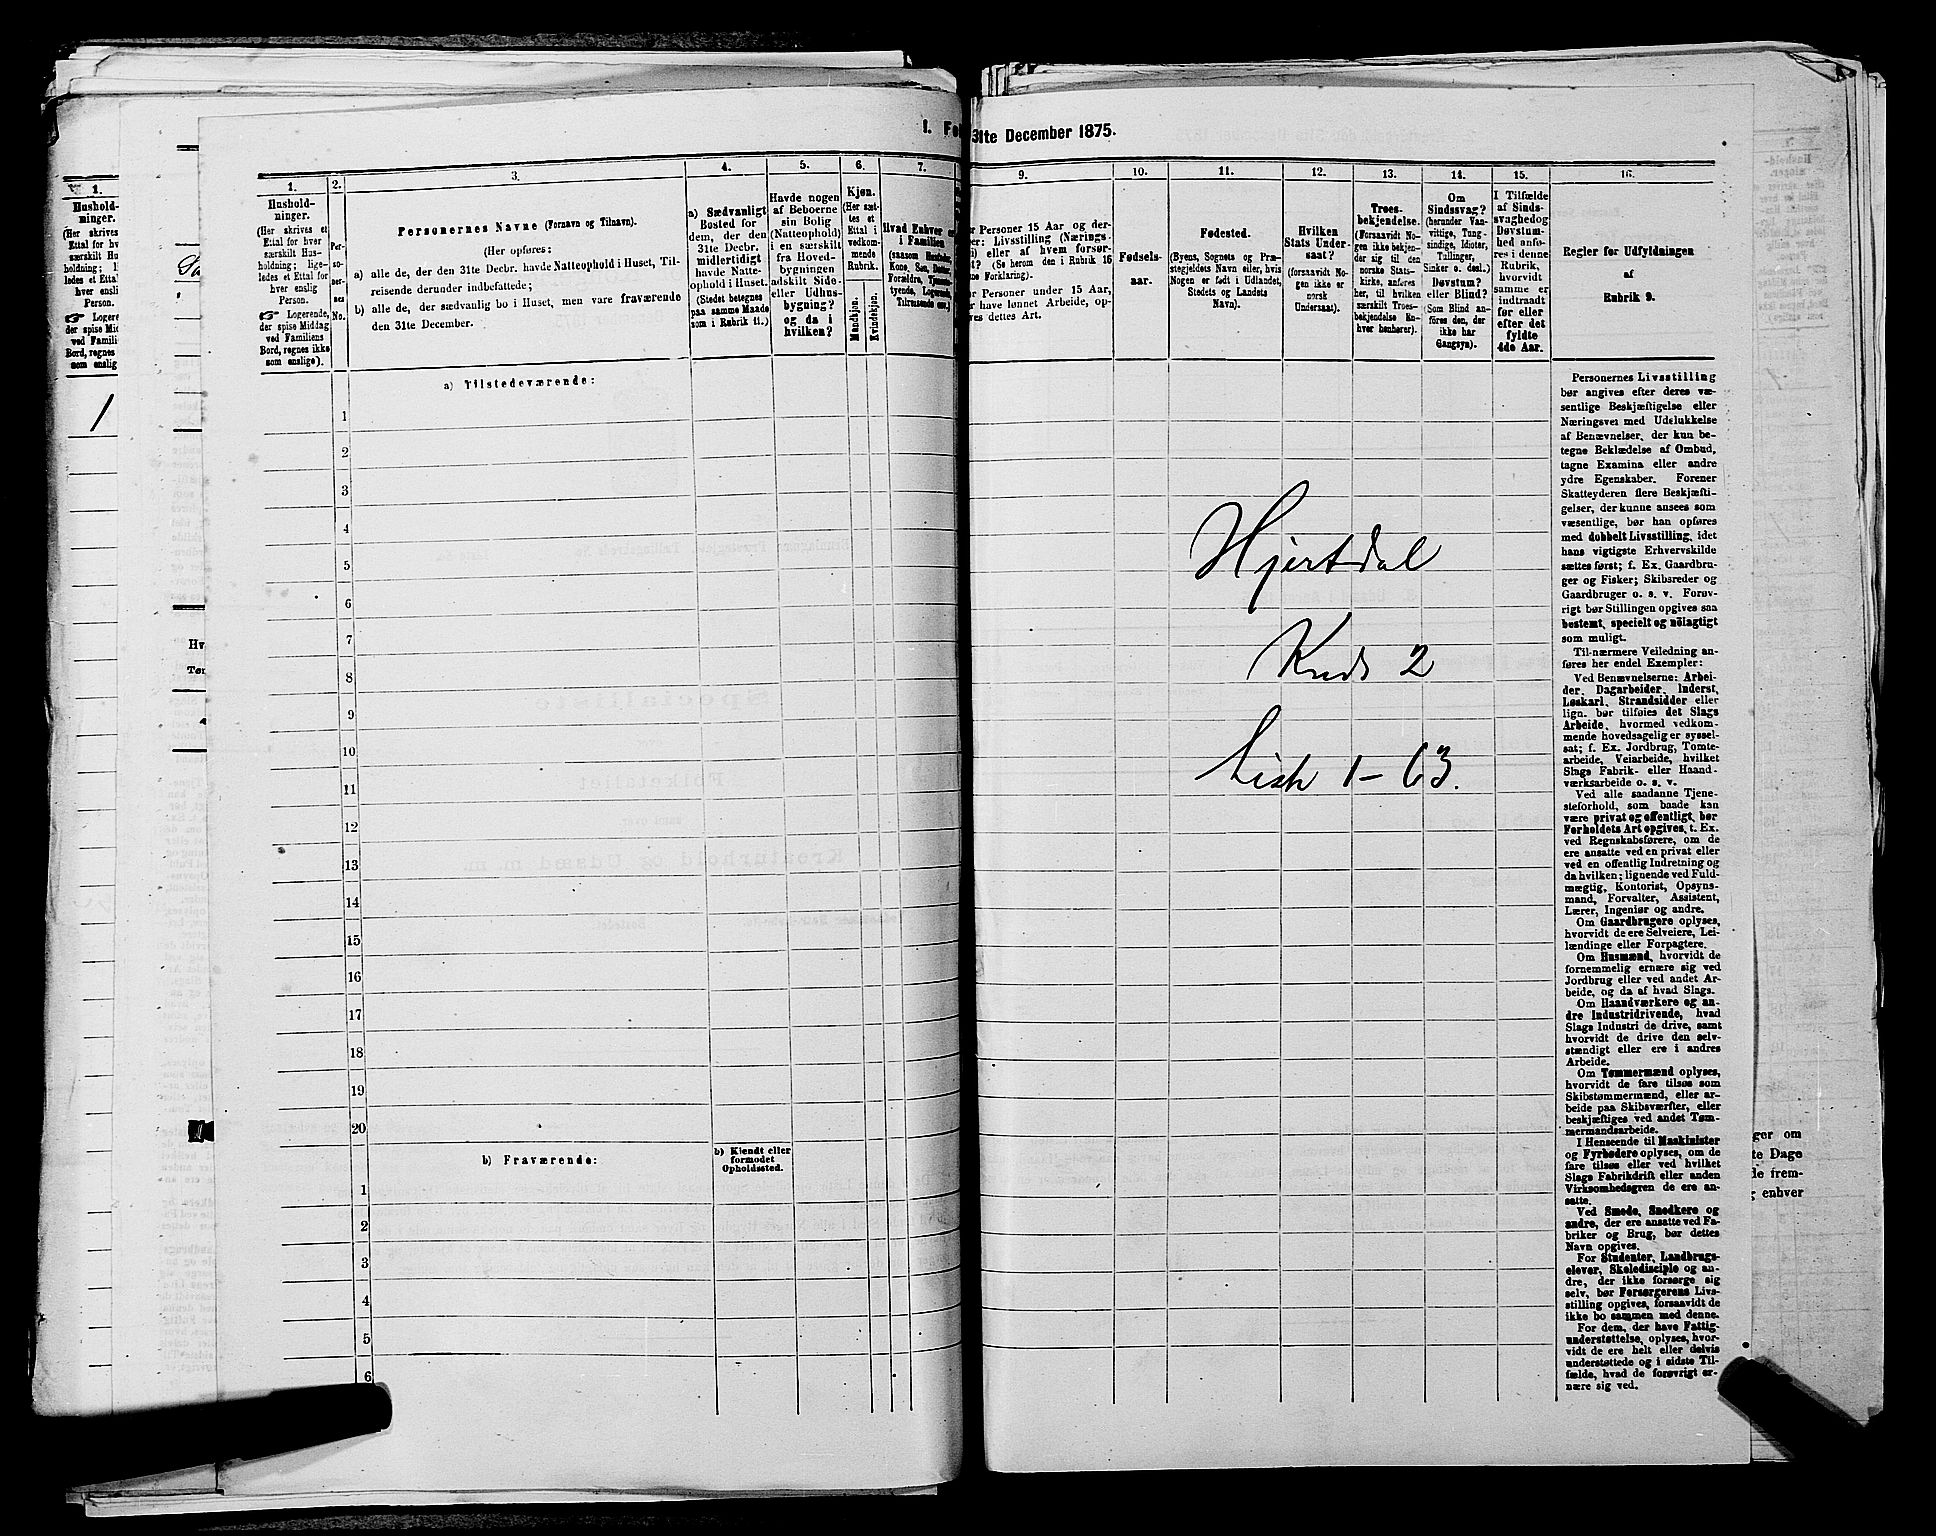 1. Fo
31te December 1875.
1.
Hushold-
ninger.
(Her skrives et
Ettal for hv
særskilt Hus
holdning; l
ledes et Ettal
hver enslig
Person.
☞ Logerende
der spise Mid
ved Famili
Bord, regnes
som enslige
1
1.
Hushold-
ninger.
(Her skrives et
Ettal for hver
særskilt Hus-
holdning; lige-
ledes et Ettal for
hver enslig
Person.
☞ Logerende,
der spise Middag
ved Familiens
Bord, regnes ikke
som enslige).
2.
Per-
so-
ner-
nes
No.
3.
Personernes Navne (Fornavn og Tilnavn).
(Her opføres:
a) alle de, der den 31te Decbr. havde Natteophold i Huset, Til-
reisende derunder indbefattede;
b) alle de, der sædvanlig bo i Huset, men vare fraværende
den 31te December.
4.
a) Sædvanligt
Bosted for
dem, der den
31te Decbr.
midlertidigt
havde Natte-
ophold i Huset.
(Stedet betegnes
paa samme Maade
som i Rubrik 11.)
5.
Havde nogen
af Beboerne
sin Bolig
(Natteophold)
i en særskilt
fra Hoved-
bygningen
adskilt Side-
eller Udhus-
bygning?
og da i
hvilken?
6.
Kjøn.
(Her sæt-
tes et
Ettal i
vedkom-
mende
Rubrik.
Mandkjøn.
Kvindekjøn.
7.
Hvad Enhver er
i Familien
(saasom Husfader,
Kone, Søn, Datter,
Forældre, Tjeneste-
tyende, Logerende,
Tilreisende osv.)
9.
r Personer 15 Aar og der-
er: Livsstilling (Nærings-
i) eller af hvem forsør-
t? (Se herom den i Rubrik 16
ne Forklaring).
r Personer under 15 Aar,
r have lønnet Arbeide, op-
ves dettes Art.
10.
Fødsels-
aar.
11.
Fødested.
(Byens, Sognets og Præ-
stegjeldets Navn eller, hvis
Nogen er født i Udlandet,
Stedets og Landets
Navn).
12.
Hvilken
Stats Under-
saat?
(forsaavidt No-
gen ikke er
norsk
Undersaat).
13.
Troes-
bekjendelse.
(Forsaavidt No-
gen ikke bekjen-
der sig til den
norske Stats-
kirke, anføres
her, til hvilken
særskilt Troes-
bekjendelse En-
hver henhører).
14.
Om
Sindssvag?
(herunder Van-
vittige, Tung-
sindige, Idioter,
Tullinger,
Sinker o. desl.)
Døvstum?
eller Blind?
(Som Blind an-
føres den, der
ikke har
Gangsyn).
15.
I Tilfælde
af Sinds-
svaghed og
Døvstum-
hed anfø-
res i denne
Rubrik,
hvorvidt
samme er
indtraadt
før eller
efter det
fyldte
4de Aar.
16.
Regler for Udfyldningen
af
Rubrik 9.
a) Tilstedeværende:
1
2
3
4
5
6
7
8
9
10
11
12
13
14
15
16
17
18
19
20
b) Fraværende:
b) Kjendt eller
formodet
Opholdssted.
1
2
3
4
5
6
Hjertdal
Kreds 2
Liste 1-63.
Personernes Livsstilling
bør angives efter deres væ-
sentlige Beskjæftigelse eller
Næringsvei med Udelukkelse
af Benævnelser, der kun be-
tegne Beklædelse af Ombud,
tagne Examina eller andre
ydre Egenskaber. Forener
Skatteyderen flere Beskjæfti-
gelser, der kunne ansees som
væsentlige, bør han opføres
med dobbelt Livsstilling, idet
hans vigtigste Erhvervskilde
sættes først; f. Ex. Gaardbru-
ger og Fisker; Skibsreder og
Gaardbruger o. s. v. Forøv-
rigt bør Stillingen opgives saa
bestemt, specielt og nøiagtigt
som muligt.
Til nærmere Veiledning an-
føres her endel Exempler:
Ved Benævnelserne: Arbei-
der, Dagarbeider, Inderst,
Løskarl, Strandsidder eller
lign. bør tilføies det Slags
Arbeide, hvormed vedkom-
mende hovedsagelig er syssel-
sat; f. Ex. Jordbrug, Tomte-
arbeide, Veiarbeide, hvilket
Slags Fabrik- eller Haand-
værksarbeide o. s. v.
Ved alle saadanne Tjene-
steforhold, som baade kan
være privat og offentligt, bør
Forholdets Art opgives, t. Ex.
ved Regnskabsførere, om de
ere ansatte ved en privat eller
ved en offentlig Indretning og
da hvilken; lignende ved Fuld-
mægtig, Kontorist, Opsyns-
mand, Forvalter, Assistent,
Lærer, Ingeniør og andre.
Om Gaardbrugere oplyses,
hvorvidt de ere Selveiere, Lei-
lændinge eller Forpagtere.
Om Husmænd, hvorvidt de
fornemmelig ernære sig ved
Jordbrug eller ved andet Ar-
beide, og da af hvad Slags.
Om Haandværkere og an-
dre Industridrivende, hvad
Slags Industri de drive, samt
hvorvidt de drive den selv-
stændigt eller ere i andres
Arbeide.
Om Tømmermænd oplyses,
hvorvidt de fare tilsøs som
Skibstømmermænd, eller ar-
beide paa Skibsværfter, eller
beskjæftiges ved andet Tøm-
mermandsarbeide.
I Henseende til Maskinister
og Fyrbødere oplyses, om de
fare tilsøs eller ved hvilket
Slags Fabrikdrift eller anden
Virksomhedsgren de ere an-
satte.
Ved Smede, Snedkere og
andre, der ere ansatte ved Fa-
briker og Brug, bør dettes
Navn opgives.
For Studenter, Landbrugs-
elever, Skoledisciple og an-
dre, der ikke forsørge sig
selv, bør Forsørgerens Livs-
stilling opgives, forsaavidt de
ikke bo sammen med denne.
For dem, der have Fattig-
understøttelse, oplyses, hvor-
vidt de ere helt eller delvis
understøttede og i sidste Til-
fælde, hvad de forøvrigt er-
nære sig ved.
ger om
te Dage
de frem-
g enhver